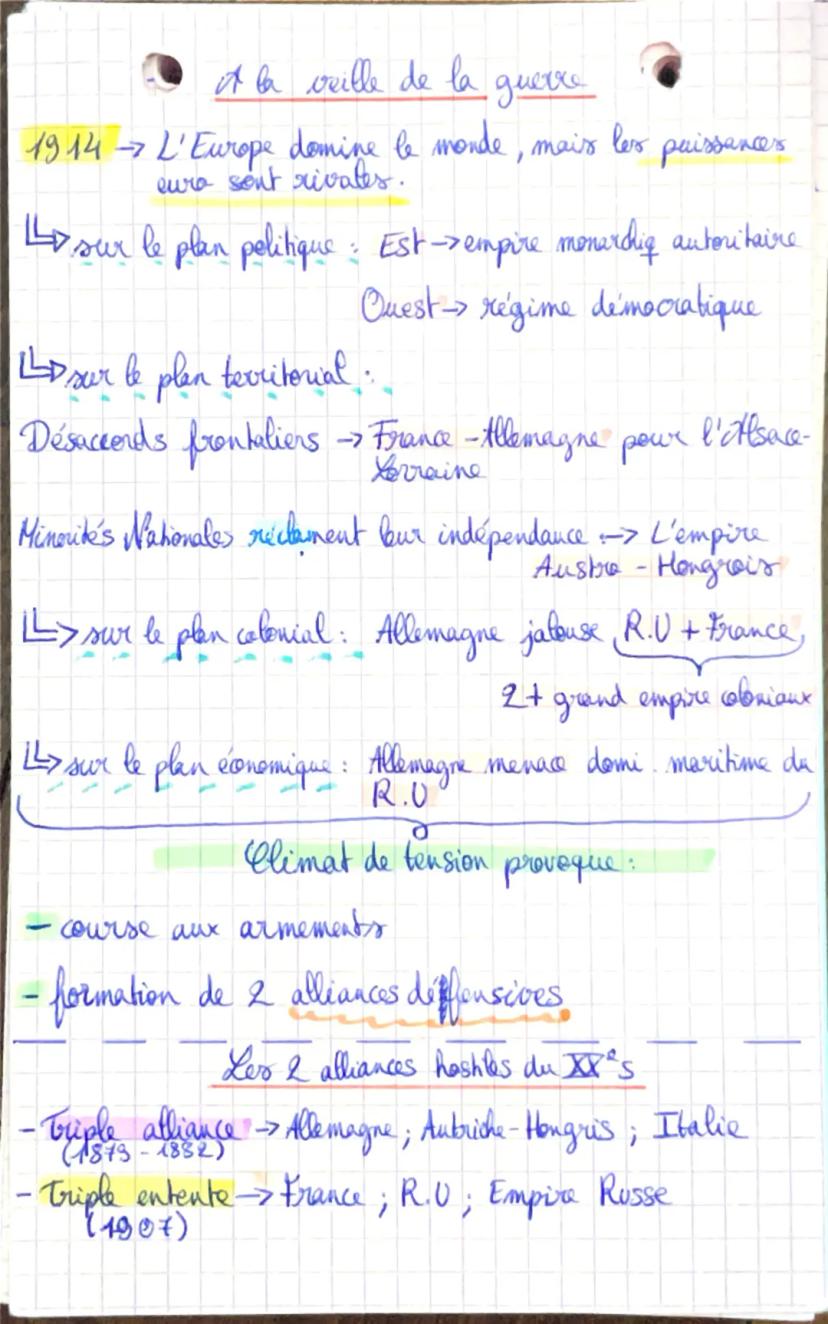 A la veille de la guerre
1914 → L'Europe domine le monde, mais les puissances
euro sont rivales.
↳ sur le plan politique : Est → empire monarchiq autoritaire
Ouest → régime démocratique
↳ sur le plan territorial :
Désaccords frontaliers → France - Allemagne pour l'Alsace-
Lorraine
Minorités Nationales réclament leur indépendance → L'empire
Austro - Hongrois
↳ sur le plan colonial : Allemagne jalouse R.U + France
2 + grand empire coloniaux
↳ sur le plan économique : Allemagne menace domi. maritime du
R.U
Climat de tension provoque :
- course aux armements
- formation de 2 alliances déffensives
Les 2 alliances hostiles du XXe s
- Triple alliance → Allemagne ; Autriche-Hongris ; Italie
(1879 - 1882)
- Triple entente → France ; R.U ; Empire Russe
(1907)